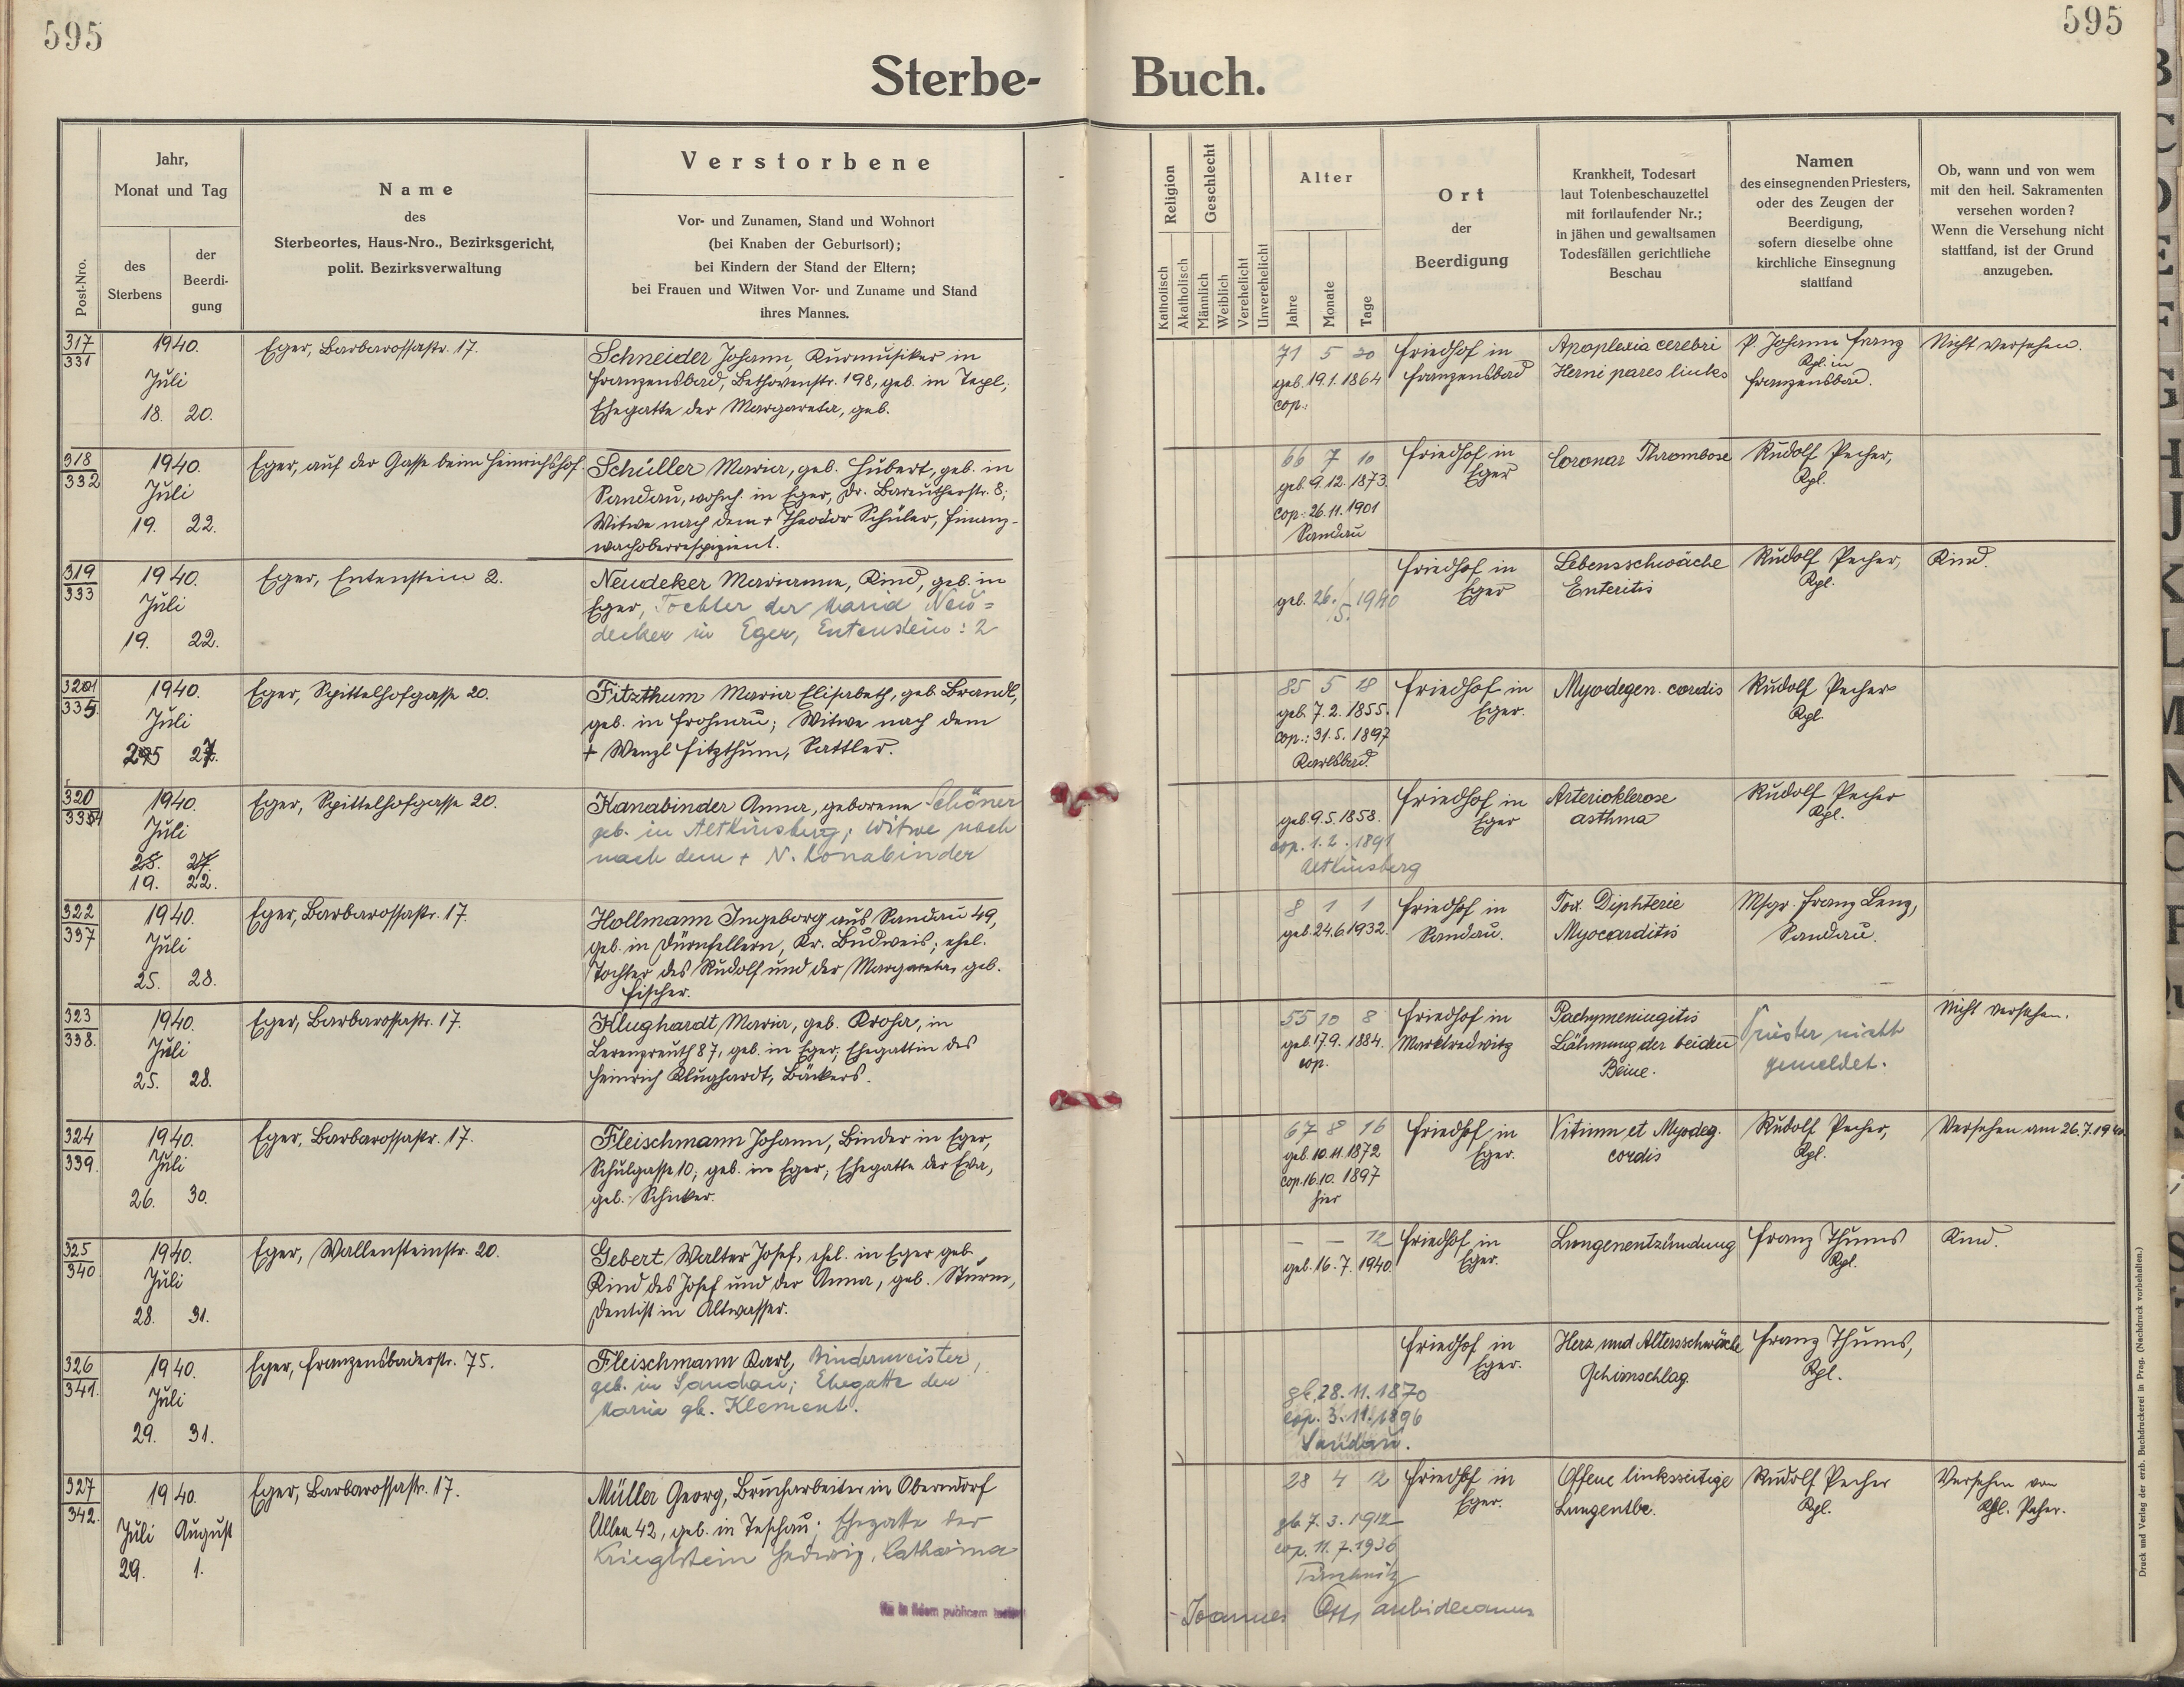 595
595
Sterbe- Buch.
Post-Nro.
Jahr,
Monat und Tag
des
Sterbens
der
Beerdi-
gung
Name
des
Sterbeortes, Haus-Nro., Bezirksgericht,
polit. Bezirksverwaltung
Verstorbene
Vor- und Zunamen, Stand und Wohnort
(bei Knaben der Geburtsort);
bei Kindern der Stand der Eltern;
bei Frauen und Witwen Vor- und Zuname und Stand
ihres Mannes.
Religion
Katholisch
Akatholisch
Geschlecht
Männlich
Weiblich
Verehelicht
Unverehelicht
Alter
Jahre
Monate
Tage
Ort
der
Beerdigung
Krankheit, Todesart
laut Totenbeschauzettel
mit fortlaufender Nr.;
in jähen und gewaltsamen
Todesfällen gerichtliche
Beschau
Namen
des einsegnenden Priesters,
oder des Zeugen der
Beerdigung,
sofern dieselbe ohne
kirchliche Einsegnung
stattfand
Ob, wann und von wem
mit den heil. Sakramenten
versehen worden?
Wenn die Versehung nicht
stattfand, ist der Grund
anzugeben.
317
331
1940.
Juli
18. 20.
Eger, Barbarossastr. 17.
Schneider Johann, Kurmusiker in
Franzensbad, Bethovenstr. 198, geb. in Tepl;
Ehegatte der Margareta, geb.
71 5 20
geb. 19.1.1864
cop.:
Friedhof in
Franzensbad
Apoplexia cerebri
Hemi pares links
P. Johann Franz
Kpl. in
Franzensbad.
Nicht versehen.
318
332
1940.
Juli
19. 22.
Eger, auf der Gasse beim Heinrichshof.
Schüller Maria, geb. Hubert, geb. in
Sandau, wohnh. in Eger, Dr. Bareutherstr. 8;
Witwe nach dem + Theodor Schüler, Finanz-
wachoberrespizient.
66 7 10
geb. 9.12.1873.
cop.: 26.11.1901
Sandau
Friedhof in
Eger
Coronar Thrombose
Rudolf Pecher,
Kpl.
319
333
1940.
Juli
19. 22.
Eger, Entenstein 2.
Neudeker Marianne, Kind, geb. in
Eger, Tochter der Maria Neu=
decker in Eger, Entenstein: 2
geb. 26./5. 1940
Friedhof in
Eger
Lebensschwäche
Enteritis
Rudolf Pecher,
Kpl.
Kind.
321
335
1940.
Juli
25 27.
Eger, Spittelhofgasse 20.
Fitzthum Maria Elisabeth, geb. Brandl,
geb. in Frohnau; Witwe nach dem
+ Wenzl Fitzthum, Sattler.
85 5 18
geb. 7.2.1855.
cop.: 31.5.1897
Karlsbad.
Friedhof in
Eger.
Myodegen. cordis
Rudolf Pecher
Kpl.
320
334
1940.
Juli
25. 27.
19. 22.
Eger, Spittelhofgasse 20.
Kanabinder Anna, geborene Schöner
geb. in Altkinsberg; Witwe nach
nach dem + N. Konabinder
geb. 9.5.1858.
cop. 1.2.1891
Altkinsberg
Friedhof in
Eger
Arterioklerose
asthma
Rudolf Pecher
Kpl.
322
337
1940.
Juli
25. 28.
Eger, Barbarossastr. 17.
Hollmann Ingeborg aus Sandau 49,
geb. in Dürnfellern, Kr. Budweis; ehel.
Tochter des Rudolf und der Margareta, geb.
Fischer.
8 1 1
geb. 24.6.1932.
Friedhof in
Sandau.
Tox. Diphterie
Myocarditis
Msgr. Franz Lenz,
Sandau.
323
338.
1940.
Juli
25. 28.
Eger, Barbarossastr. 17.
Klughardt, Maria, geb. Kroha, in
Lorenzreuth 87, geb. in Eger; Ehegattin des
Heinrich Klughardt, Bäckers.
55 10 8
geb. 17.9.1884.
cop.
Friedhof in
Marktredwitz
Pachymeningitis
Lähmung der beiden
Beine.
Priester nicht
gemeldet.
Nicht versehen.
324
339.
1940.
Juli
26. 30.
Eger, Barbarossastr. 17.
Fleischmann Johann, Binder in Eger,
Schulgasse 10; geb. in Eger; Ehegatte der Eva,
geb. Schicker.
67 8 16
geb. 10.11.1872
cop. 16.10.1897
hier
Friedhof in
Eger.
Vitium et Myodeg.
cordis
Rudolf Pecher,
Kpl.
Versehen am 26.7.1940.
325
340
1940.
Juli
28. 31.
Eger, Wallensteinstr. 20.
Gebert Walter Josef, ehel. in Eger geb.
Kind des Josef und der Anna, geb. Sturm,
Dentist in Altwasser.
– – 12
geb. 16.7.1940.
Friedhof in
Eger.
Lungenentzündung
Franz Thums
Kpl.
Kind.
326
341.
1940.
Juli
29. 31.
Eger, Franzensbaderstr. 75.
Fleischmann Karl, Bindermeister,
geb. in Sandau; Ehegatte der
Maria gb. Klement.
gb. 28.11.1870
cop. 3.11.1896
Sandau.
Friedhof in
Eger.
Herz und Altersschwäche
Gehirnschlag.
Franz Thums,
Kpl.
327
342.
1940.
Juli August
29. 1.
Eger, Barbarossastr. 17.
Müller Georg, Brucharbeiter in Oberndorf
42, geb. in Teschau; Ehegatte der
Krieglstein Hedwig, Katharina
28 4 12
gb. 7.3.1912
cop. 11.7.1936
Friedhof in
Eger.
Offene linksseitige
Lungentbc.
Rudolf Pecher
Kpl.
Versehen von
Kpl. Pecher.
in fidem publicam
Joannes Ott, archidecanus
Druck und Verlag der erzb. Buchdruckerei in Prag. (Nachdruck vorbehalten.)